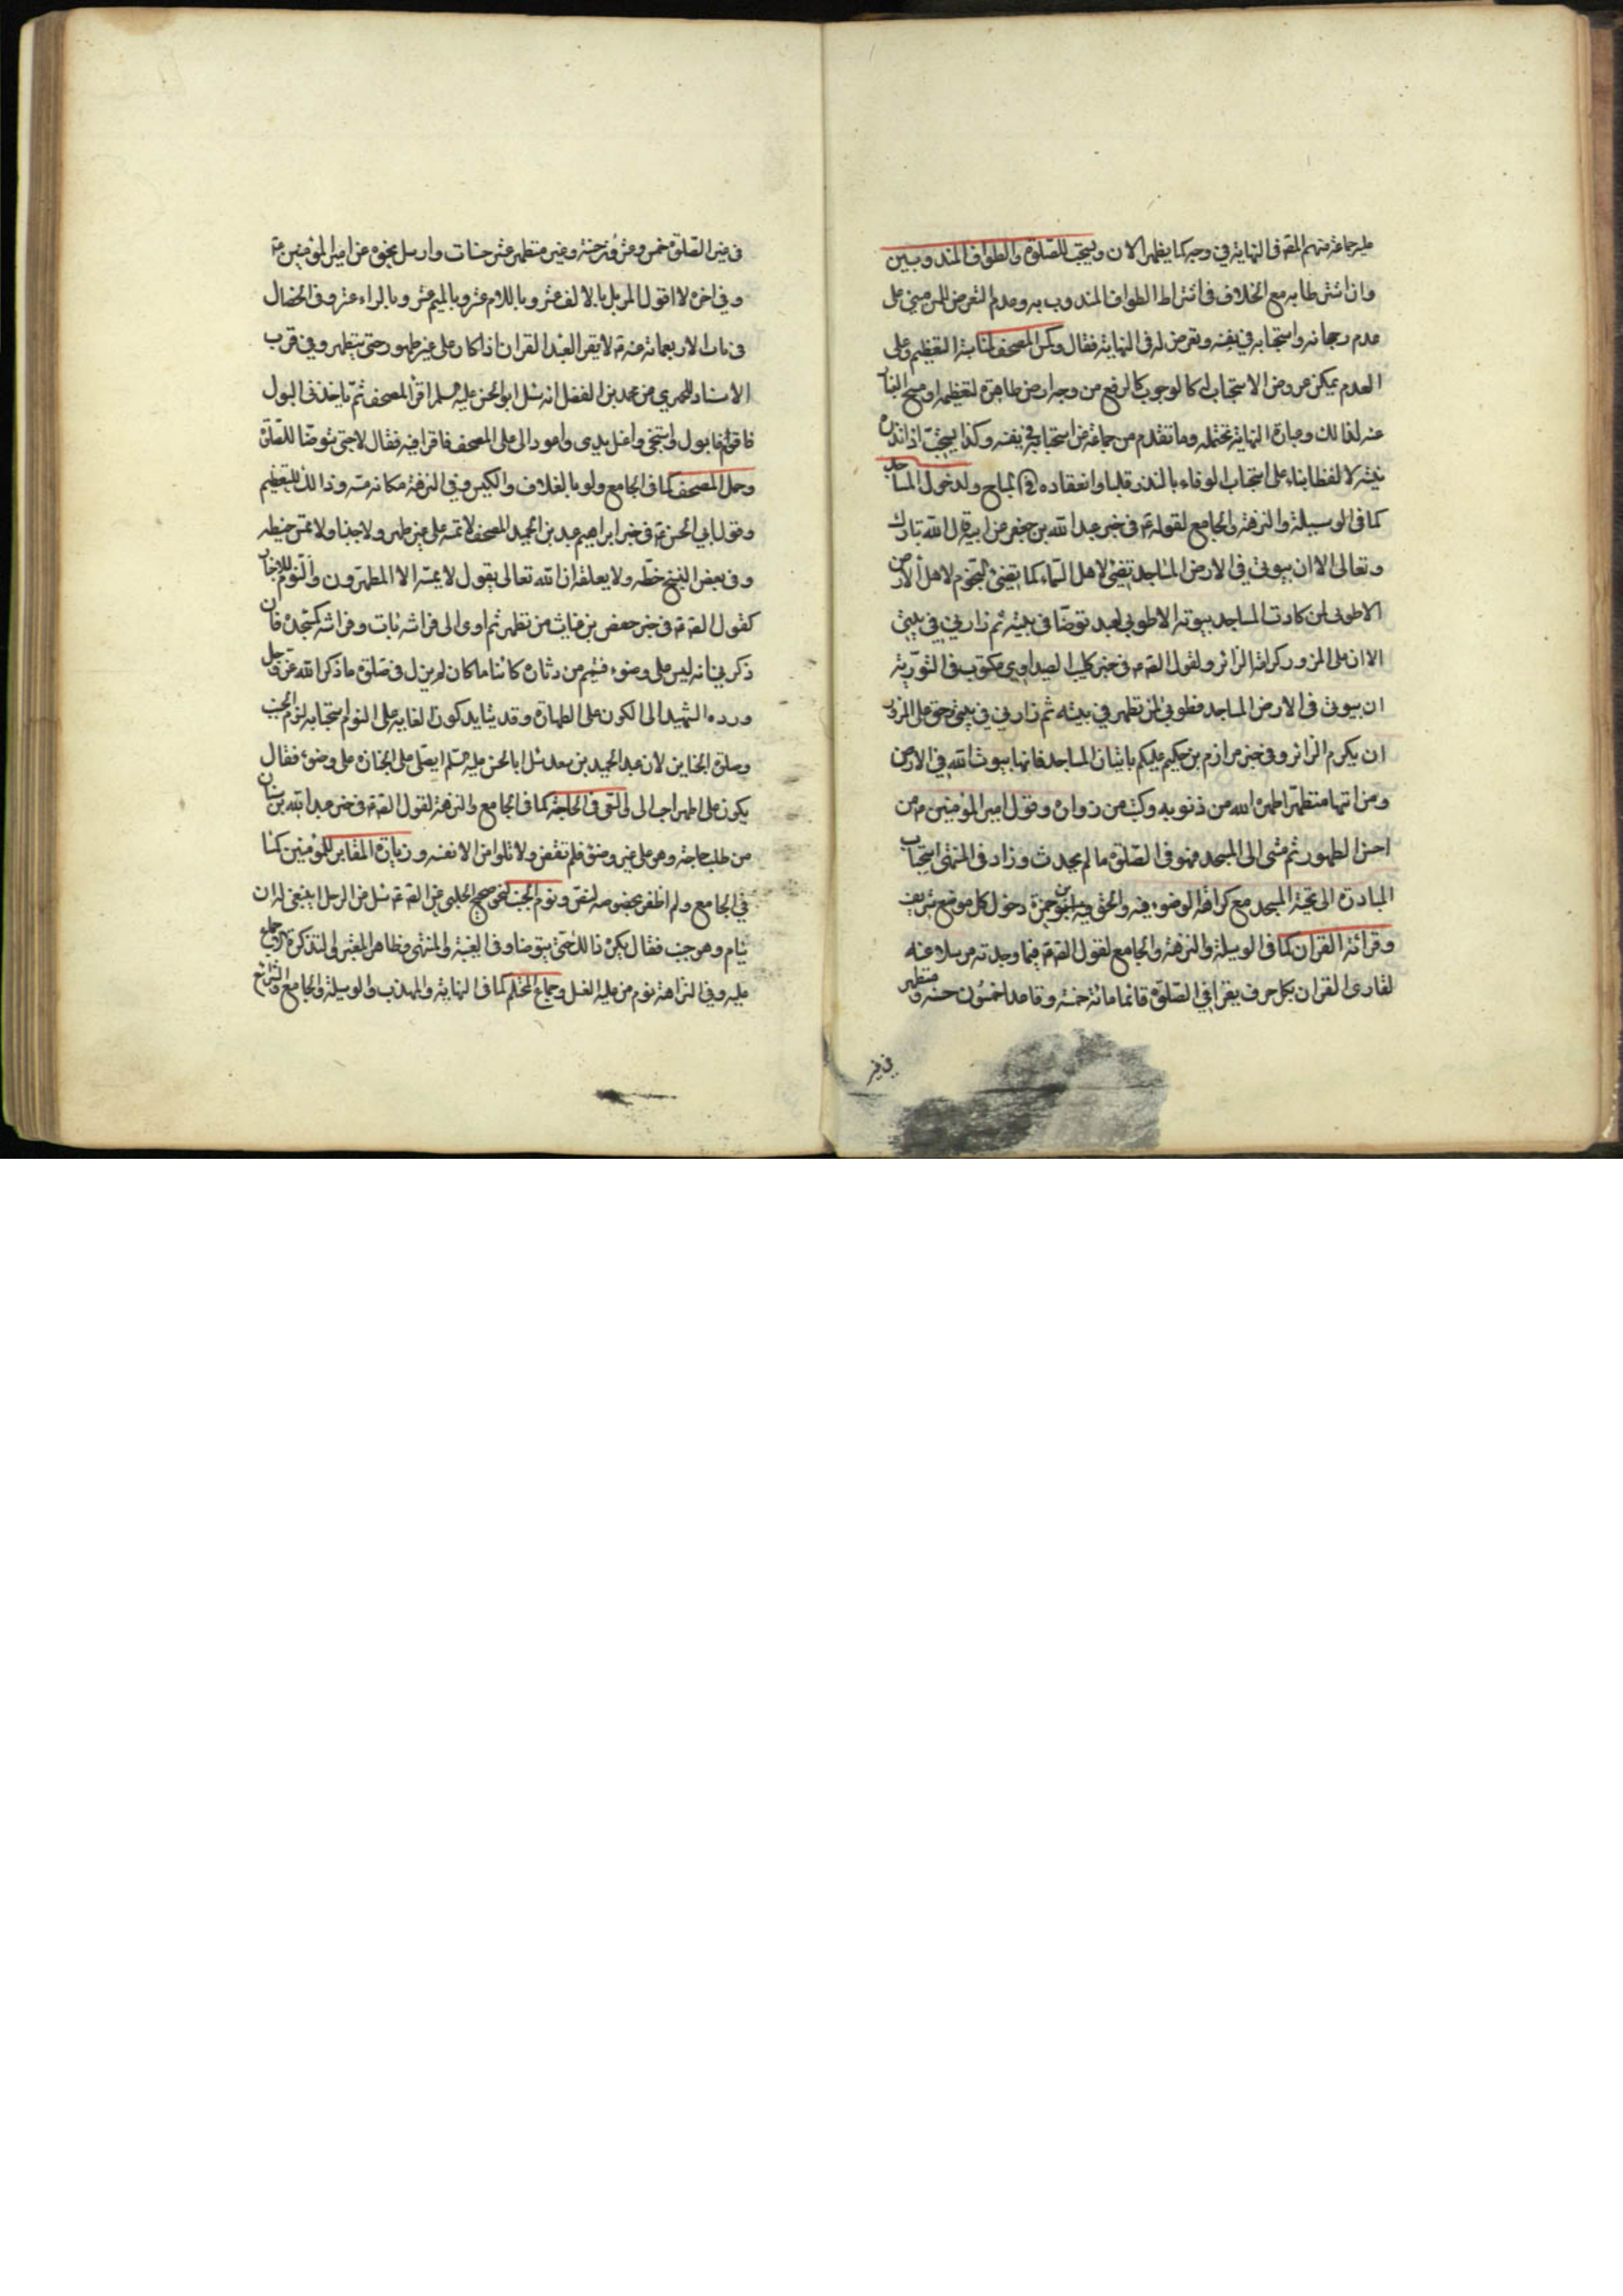 عليه جماعة منهم المصّ فى النهاية في وجه كما يظهر الان ويستحب للصّلوة والطواف المندوبين
وان اشترطا به مع الخلاف فى اشتراط الطواف المندوب به وعدم التعرض للمس مبنى على
عدم رجحانه واستحبابه في نفسه وتعرض له فى النهاية فقال ولمس المصحف لمناسبة التعظيم وعلى
العدم يمكن عروض الاستحباب له كالوجوب كالرفع من وجه ارض طاهرة لتعظيمه او مسح الغبار
عنه لذالك وعبارة النهاية تحتمله وما تقدم من جماعة من استحبابه في نفسه وكذا يستحبّ اذا نذره
بنيّته لا لفظا بناء على استحباب الوفاء بالنذر قلبا وانعقاده فى المباح ولدخول المساجد
كما فى الوسيلة والنزهة والجامع لقوله ص فى خبر عبد الله بن جعفر عن ابيه قال الله تبارك
وتعالى الا ان بيوتي في الارض المساجد تضئ لاهل السّماء كما تضئ النجوم لاهل الارض
الا طوبى لمن كانت المساجد بيوته الا طوبى لعبد توضّأ فى بيته ثم زارني في بيتي
الا ان على المزور كرامة الزائر ولقول الصّ ع فى خبر كليب الصيداوي مكتوب فى التّورية
ان بيوتى فى الارض المساجد فطوبى لمن تطهر في بيته ثم زارني في بيتى وحق على المزور
ان يكرم الزائر وفى خبر مرازم بن حكيم عليكم باتيان المساجد فانها بيوت الله في الارض
ومن اتيها متطهّرا طهره الله من ذنوبه وكتب من زواره وقول امير المؤمنين ع من
احسن الطهور ثم مشى الى المسجد فهو فى الصّلوة ما لم يحدث وزاد فى المنتهى استحباب
المبادرة الى تحيّة المسجد مع كراهة الوضوء فيه والحق به ابن حمزة دخول كل موضع شريف
وقرائة القران كما فى الوسيلة والنزهة والجامع لقول الصّ ع فيما وجدته مرسلا عنه
لقارى القران بكل حرف يقرا في الصّلوة قائما مائة حسنة وقاعدا خمسون حسنة ومتطهر
فى غير
فى غير الصّلوة خمس وعشرون حسنة وغير متطهر عشر حسنات وارسل نحوه عن امير المؤمنين ع
وفي اخره لا اقول المر بل بالالف عشر وباللام عشر وبالميم عشر وبالراء عشر وفى الخصال
فى باب الاربعمائة عنه ع لا يقرا العبد القران اذا كان على غير طهور حتى يتطهر وفي قرب
الاسناد للحميري عن محمد بن الفضل انه سئل ابو الحسن عليه السلم اقرأ المصحف ثمّ ياخذنى البول
فاقوم فابول واستنجى واغسل يدى واعود الى المصحف فاقرا فيه فقال لا حتى تتوضّا للصّلوة
وحمل المصحف كما فى الجامع ولو بالغلاف والكيس وفي النزهة مكانه مسّه وذالك للتعظيم
وقول ابي الحسن ع فى خبر ابراهيم بن عبد الحميد المصحف لا تمسّه على غير طهر ولا جنبا ولا تمسّ خيطه
وفى بعض النسخ خطّه ولا يعلقه ان الله تعالى يقول لا يمسّه الا المطهرون والنوم للاخبار
كقول الصّ ع فى خبر حفص بن غياث من تطهر ثم اوى الى فراشه بات وفراشه كمسجده فان
ذكر انه ليس على وضوء فتيمم من دثاره كائنا ما كان لم يزل فى صلوة ما ذكر الله عزّ وجل
وردّه الشهيد الى الكون على الطهارة وقد يتايد كون الغاية على النوم استحبابه لنوم الجنب
وصلوة الجنايز لان عبد الحميد بن سعد سئل ابا الحسن عليه السّلم ايصلّى على الجنازة على غير وضوء فقال
يكون على طهر احب الى والسّعى فى الحاجة كما فى الجامع والنزهة لقول الصّ ع فى خبر عبد الله بن سنان
من طلب حاجة وهو على غير وضوء فلم تقض فلا يلومن الا نفسه وزيارة المقابر للمؤمنين كما
في الجامع ولم اظفر بخصوصه لنصّ ونوم الجنب لنحو صحيح الحلبى عن الصّ ع سئل عن الرجل اينبغى له ان
ينام وهو جنب فقال يكره ذالك حتى يتوضا وفى الغنية والمنتهى وظاهر المعتبر والتذكرة الاجماع
عليه وفي النزهة نوم من عليه الغسل وجماع المحتلم كما فى النهاية والمهذب والوسيلة والجامع والشرائع